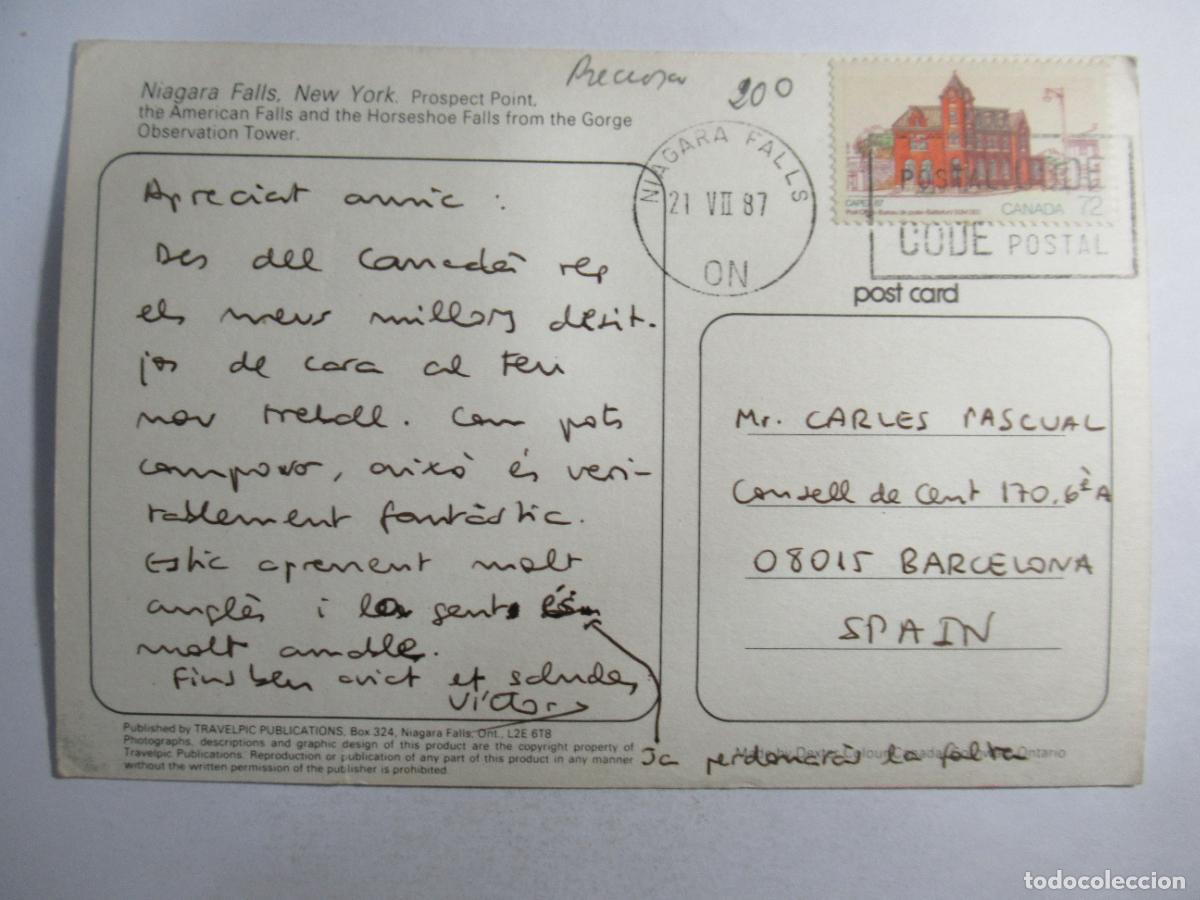 Niagara Falls, New York. Prospect Point,
the American Falls and the Horseshoe Falls from the Gorge
Observation Tower.
Preciosa
200
NIAGARA FALLS
21 VII 87
ON
CAPEX 87
CANADA 72
POSTAL CODE
CODE POSTAL
post card
Apreciat amic :
Des del Canadà rep
els meus millors desit-
jos de cara al teu
nou treball. Com pots
compovar, això és veri-
tablement fantàstic.
Estic aprenent molt
anglès i la gent és
molt amable.
Fins ben aviat et saluda,
Víctor
Ja perdonaràs la falta
Mr. CARLES PASCUAL
Consell de Cent 170, 6è A
08015 BARCELONA
SPAIN
Published by TRAVELPIC PUBLICATIONS, Box 324, Niagara Falls, Ont., L2E 6T8
Photographs, descriptions and graphic design of this product are the copyright property of
Travelpic Publications. Reproduction or publication of any part of this product in any manner
without the written permission of the publisher is prohibited.
Made by Dexter Colour Canada Ontario
todocoleccion